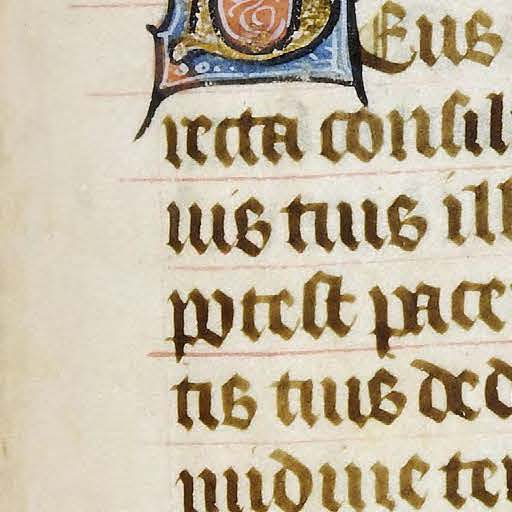 Deus
recta consil
uis tuis ill
potest pace
tis tuis ded
nudine te